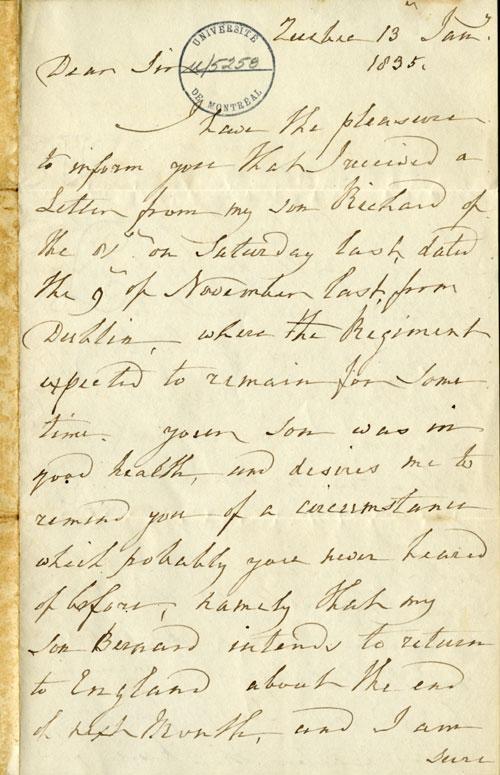 Quebec 13th Jany.
Dear Sir 1835.
UNIVERSITÉ
u/5258
DE MONTRÉAL
I have the pleasure
to inform you that I received a
Letter from my son Richard of
the on Saturday last, dated
the 9th of November last, from
Dublin, where the Regiment
expected to remain for some
time. your son was in
good health, and desires me to
remind you of a circumstance
which probably you never heared
of before, namely that my
son Bernard intends to return
to England about the end
of next Month, and I am
sure